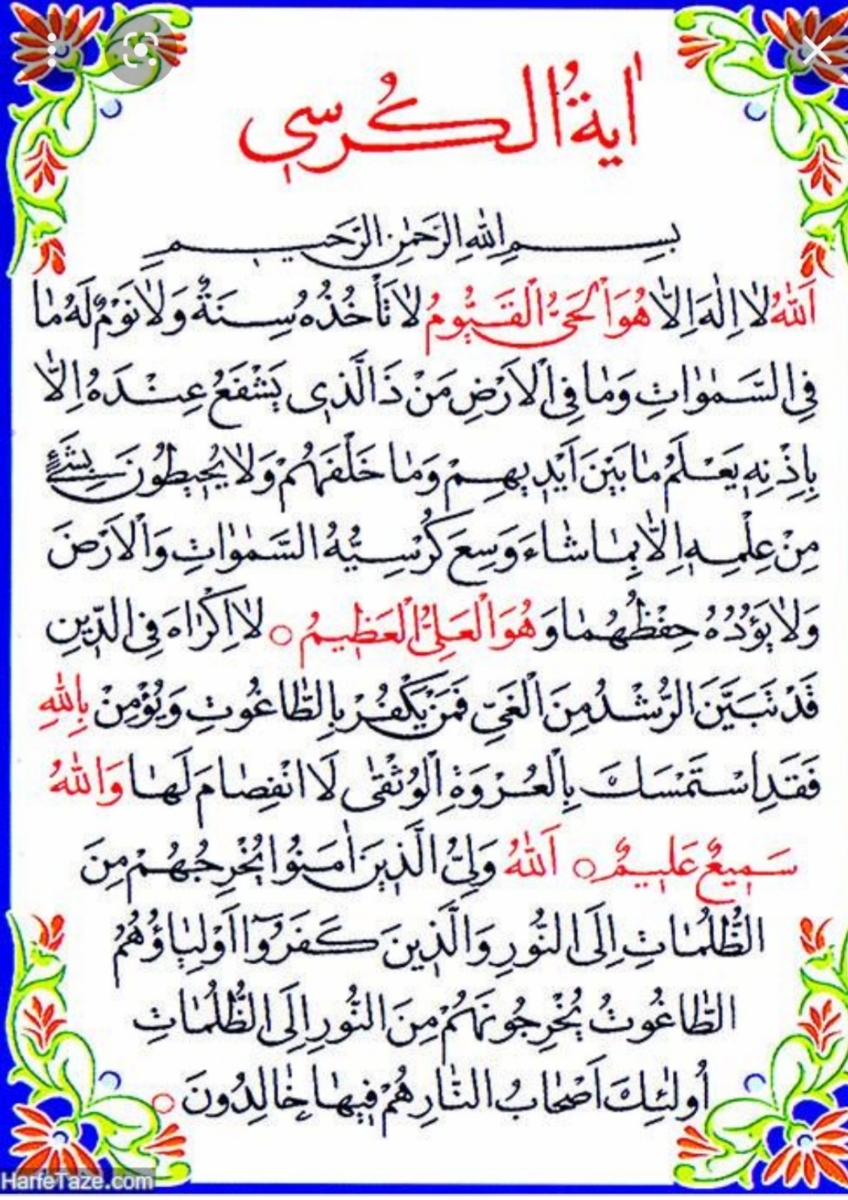 اٰیةُ الکُرسي
بِسْمِ اللهِ الرَّحْمٰنِ الرَّحيمِ
اَللهُ لا اِلٰهَ اِلّا هُوَ الْحَیُّ الْقَیُّومُ لا تَأْخُذُهُ سِنَةٌ وَلا نَوْمٌ لَهُ مٰا
فِی السَّمٰوٰاتِ وَمٰا فِی الْاَرْضِ مَنْ ذَا الَّذی یَشْفَعُ عِنْدَهُ اِلّا
بِاِذْنِهِ یَعْلَمُ مٰا بَیْنَ اَیْدیهِمْ وَمٰا خَلْفَهُمْ وَلا یُحیطُونَ بِشَیْءٍ
مِنْ عِلْمِهِ اِلّا بِمٰا شٰاءَ وَسِعَ کُرْسِیُّهُ السَّمٰوٰاتِ وَالْاَرْضَ
وَلا یَؤُدُهُ حِفْظُهُمٰا وَ هُوَ الْعَلِیُّ الْعَظیمُ ○ لا اِکْرٰاهَ فِی الدّینِ
قَدْ تَبَیَّنَ الرُّشْدُ مِنَ الْغَیِّ فَمَنْ یَکْفُرْ بِالطّٰاغُوتِ وَیُؤْمِنْ بِاللهِ
فَقَدِ اسْتَمْسَکَ بِالْعُرْوَةِ الْوُثْقٰی لَا انْفِصٰامَ لَهٰا وَاللهُ
سَمیعٌ عَلیمٌ ○ اَللهُ وَلِیُّ الَّذینَ اٰمَنُوا یُخْرِجُهُمْ مِنَ
الظُّلُمٰاتِ اِلَی النُّورِ وَالَّذینَ کَفَرُوٓا اَوْلِیٰاؤُهُمُ
الطّٰاغُوتُ یُخْرِجُونَهُمْ مِنَ النُّورِ اِلَی الظُّلُمٰاتِ
اُولٰئِکَ اَصْحٰابُ النّٰارِ هُمْ فیهٰا خٰالِدُونَ ○
HarfeTaze.com